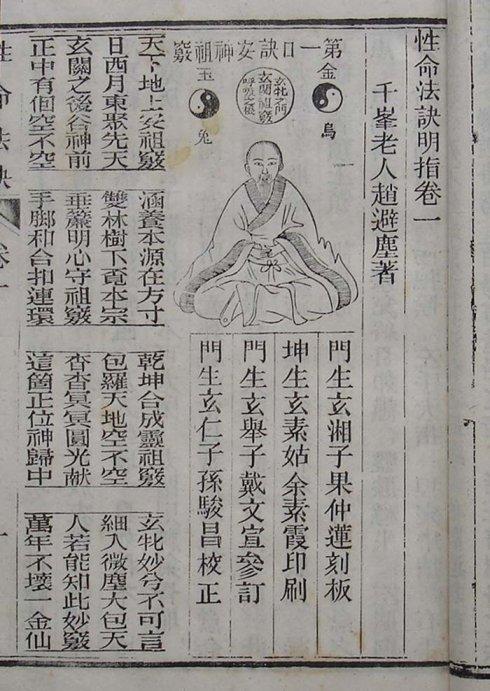 性命法訣明指卷一
千峯老人趙避塵著
第一口訣安神祖竅
金烏
玄牝之門
玄關祖竅
呼吸之根
玉兔
門生玄湘子果仲蓮刻板
坤生玄素姑余素霞印刷
門生玄舉子戴文宣參訂
門生玄仁子孫駿昌校正
天下地上安祖竅 涵養本源在方寸 乾坤合成靈祖竅 玄牝妙兮不可言
日西月東聚先天 雙林樹下覓本宗 包羅天地空不空 細入微塵大包天
玄關之後谷神前 垂簾明心守祖竅 杳杳冥冥圓光獻 人若能知此妙竅
正中有個空不空 手脚和合扣連環 這箇正位神歸中 萬年不壞一金仙
性命法訣 卷一 一